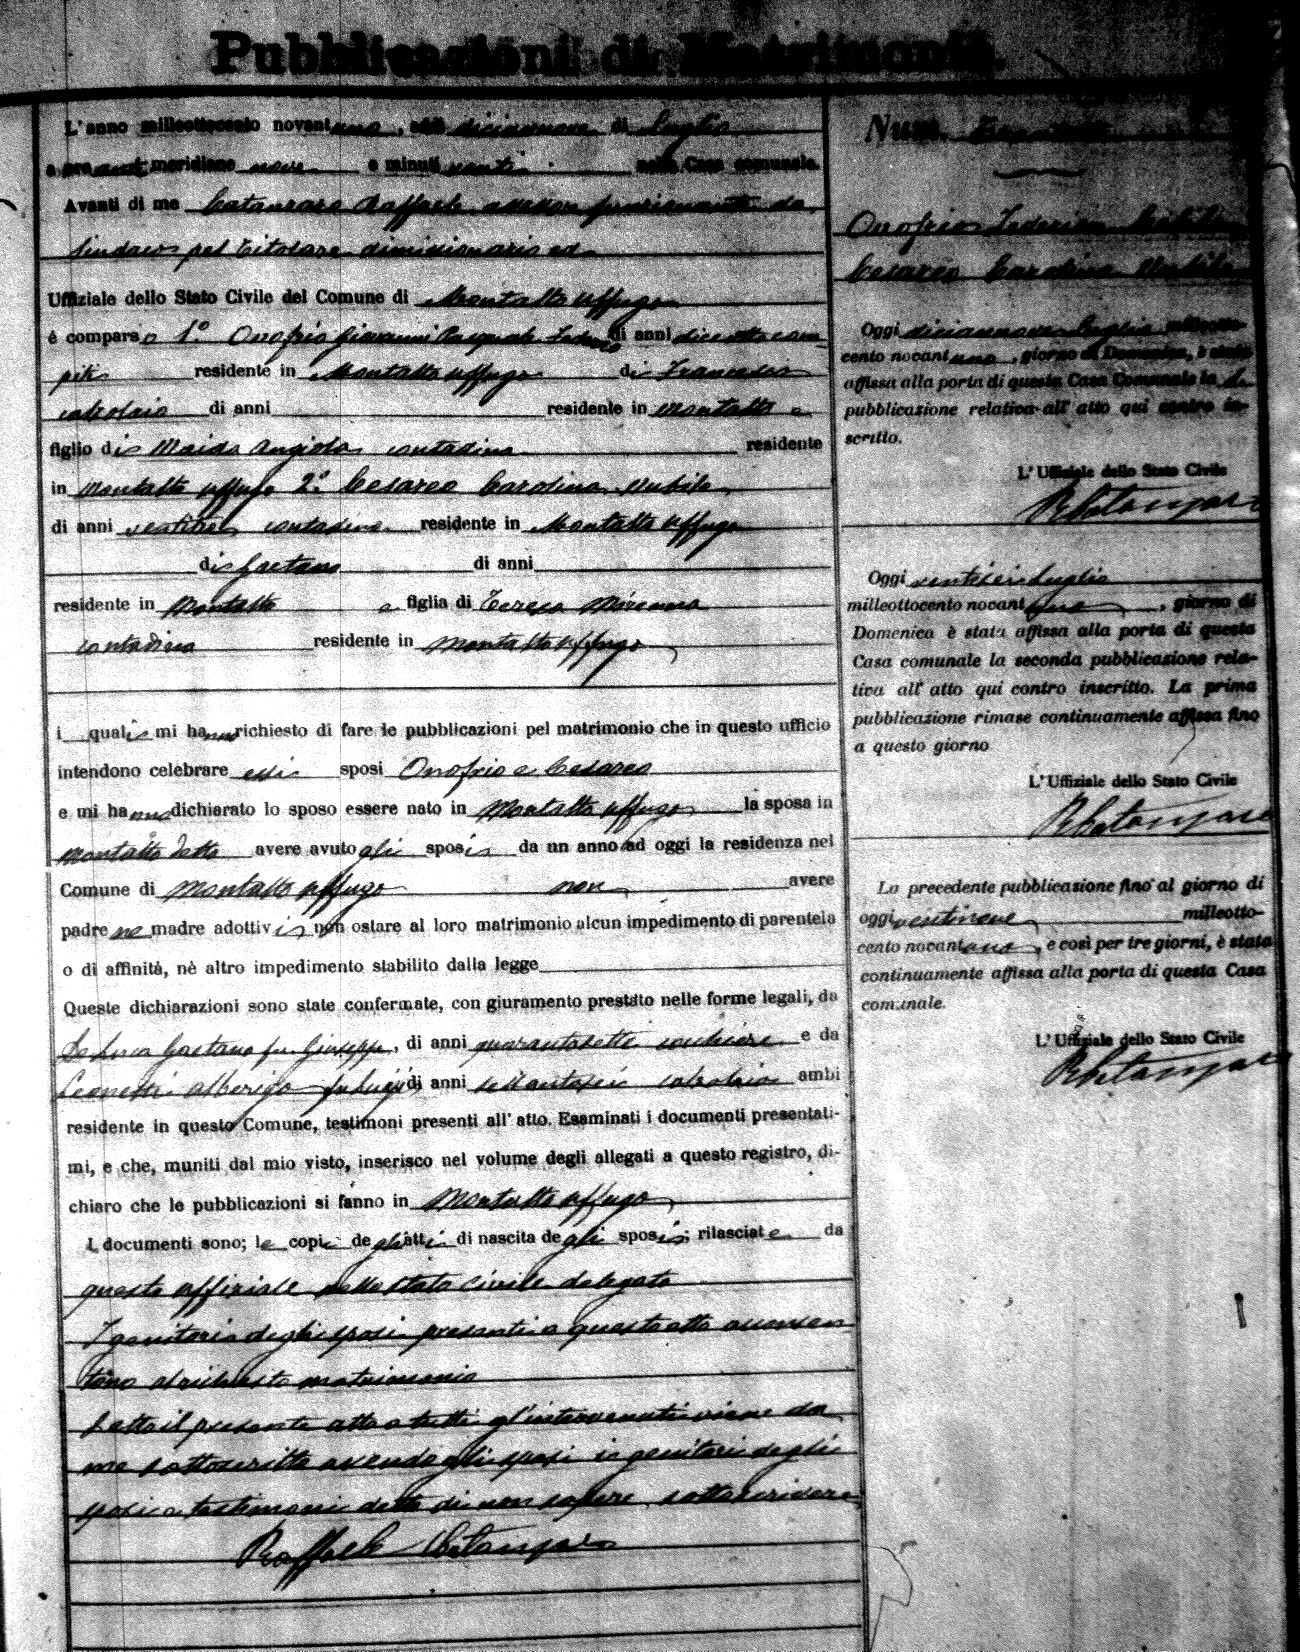 Pubblicazioni di Matrimonio.
L'anno milleottocento novantuno, addì diciannove di Luglio
a ore anti meridiane nove e minuti venti nella Casa comunale.
Avanti di me Catanzaro Raffaele assessore funzionante da
Sindaco pel titolare dimissionario ed
Uffiziale dello Stato Civile del Comune di Montalto Uffugo
è comparso 1.° Onofrio Giovanni Pasquale Federico di anni diciotto
residente in Montalto Uffugo di Francesco
calzolaio di anni residente in Montalto e
figlio di Maida Angiola contadina residente
in Montalto Uffugo 2.° Cesareo Carolina Nubile
di anni ventitre contadina residente in Montalto Uffugo
di Gaetano di anni
residente in Montalto e figlia di Teresa
contadina residente in Montalto Uffugo
i quali mi hanno richiesto di fare le pubblicazioni pel matrimonio che in questo ufficio
intendono celebrare essi sposi Onofrio e Cesareo
e mi hanno dichiarato lo sposo essere nato in Montalto Uffugo la sposa in
Montalto detto avere avuto gli sposi da un anno ad oggi la residenza nel
Comune di Montalto Uffugo non avere
padre ne madre adottivi non ostare al loro matrimonio alcun impedimento di parentela
o di affinità, nè altro impedimento stabilito dalla legge
Queste dichiarazioni sono state confermate, con giuramento prestato nelle forme legali, da
De Luca Gaetano fu Giuseppe, di anni quarantasette cocchiere e da
Leonetti Alberigo fu Luigi di anni sessantasei calzolaio ambi
residente in questo Comune, testimoni presenti all'atto. Esaminati i documenti presentati-
mi, e che, muniti dal mio visto, inserisco nel volume degli allegati a questo registro, di-
chiaro che le pubblicazioni si fanno in Montalto Uffugo
I documenti sono; le copie degli atti di nascita degli sposi; rilasciate da
questo uffiziale dello stato civile delegato
I genitori degli sposi presenti a questo atto acconsen
tono al richiesto matrimonio
Letto il presente atto a tutti gl'intervenuti viene da
me sottoscritto avendo gli sposi i genitori degli
sposi e testimoni detto di non sapere sottoscrivere
Raffaele Catanzaro
Num.
Onofrio Federico
Cesareo Carolina Nubile
Oggi diciannove Luglio milleotto-
cento novantuno, giorno di Domenica, è stata
affissa alla porta di questa Casa Comunale la
pubblicazione relativa all'atto qui contro in-
scritto.
L'Uffiziale dello Stato Civile
R Catanzaro
Oggi ventisei Luglio
milleottocento novantuno, giorno di
Domenica è stata affissa alla porta di questa
Casa comunale la seconda pubblicazione rela-
tiva all'atto qui contro inscritto. La prima
pubblicazione rimase continuamente affissa fino
a questo giorno
L'Uffiziale dello Stato Civile
R Catanzaro
La precedente pubblicazione fino al giorno di
oggi ventinove milleotto-
cento novantuno, e così per tre giorni, è stata
continuamente affissa alla porta di questa Casa
comunale.
L'Uffiziale dello Stato Civile
R Catanzaro